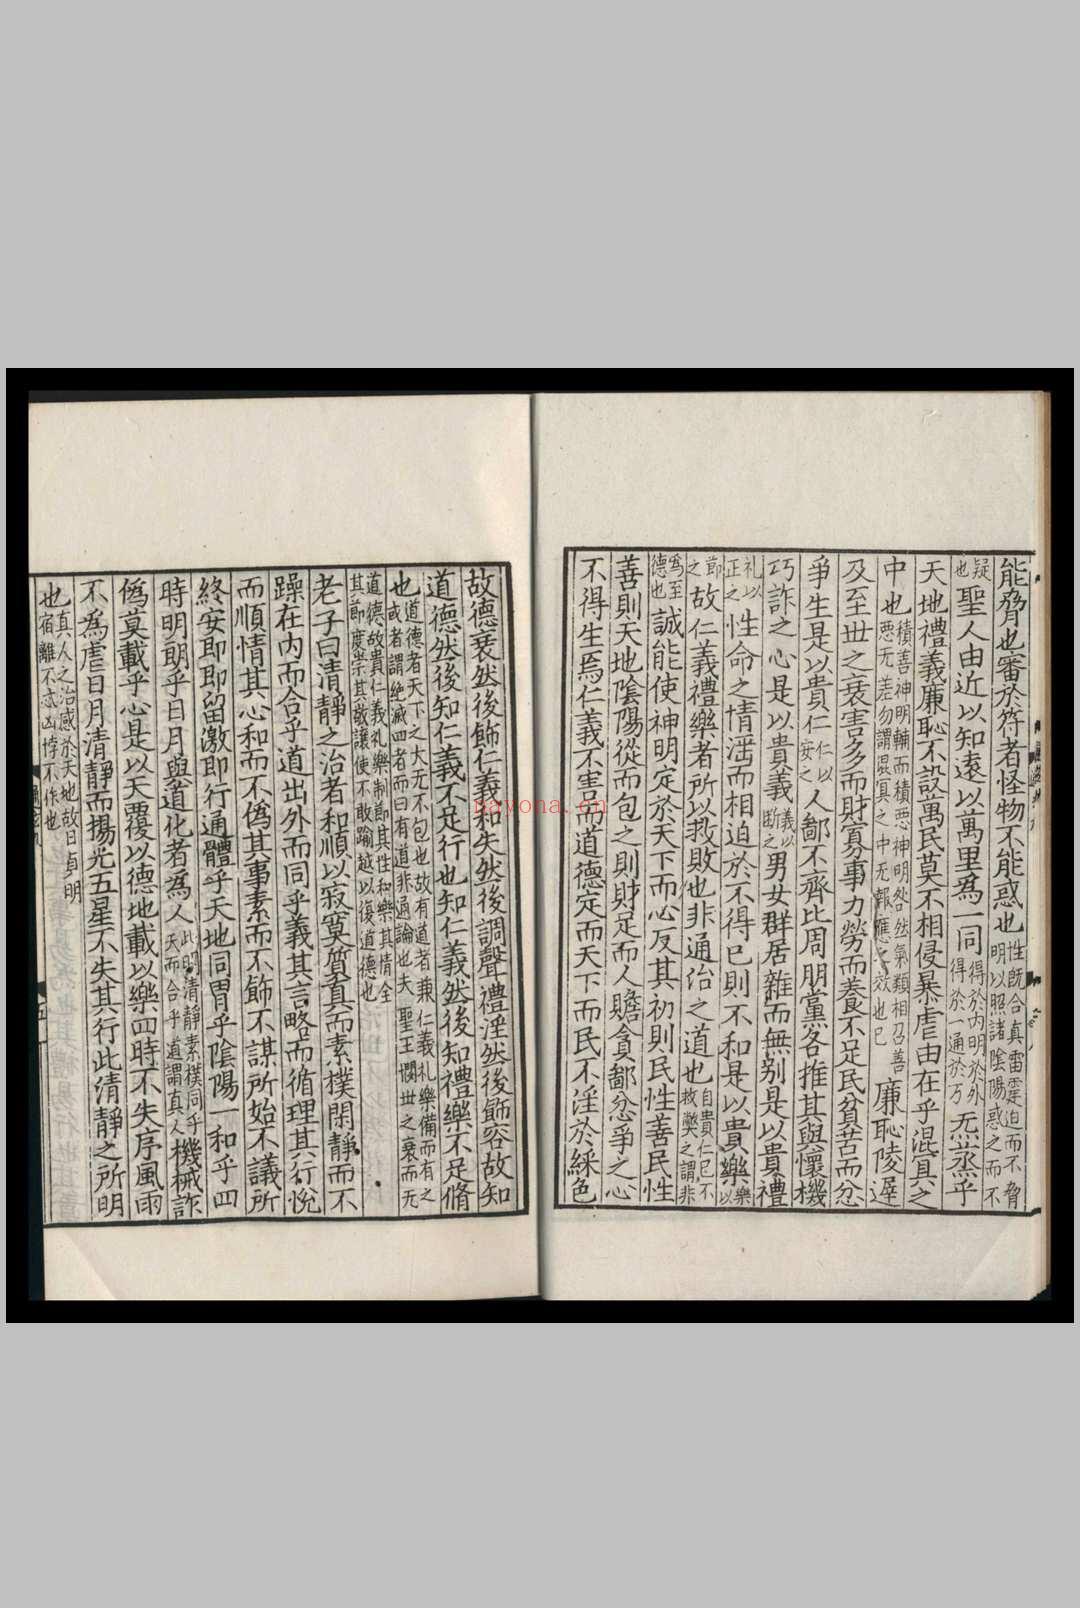 能脅也審於符者怪物不能惑也性既合真雷霆迫而不脅明以照諸陰陽惑之而不
疑也聖人由近以知遠以萬里為一同得於內明於外得於一通於万炁蒸乎
天地禮義廉恥不設萬民莫不相侵暴虐由在乎混冥之
中也積善神明輔而積惡神明然然氣類相召善惡无差勿謂混冥之中无報應之效也已廉恥陵遲
及至世之衰害多而財寡事力勞而養不足民貧苦而忿
爭生是以貴仁仁以安之人鄙不齊比周朋黨各推其與懷機
巧詐之心是以貴義義以斷之男女群居雜而無別是以貴禮
礼以正之性命之情淫而相迫於不得已則不和是以貴樂樂以
節之故仁義禮樂者所以救敗也非通治之道也自貴仁已不救弊之謂非
為至德也誠能使神明定於天下而心反其初則民性善民性
善則天地陰陽從而包之則財足而人贍貪鄙忿爭之心
不得生焉仁義不害而道德定而天下而民不淫於綵色
故德衰然後飾仁義和失然後調聲禮淫然後飾容故知
道德然後知仁義不足行也知仁義然後知禮樂不足脩
也道德者天下之大无不包也故有道者兼仁義礼樂備而有之或者謂絕滅四者而曰有道非通論也夫聖王憫世之衰而无
道德故貴仁義礼樂制節其性和樂其情全其節度崇其敬讓使不敢踰越以復道德也
老子曰清靜之治者和順以寂寞質真而素樸閑靜而不
躁在內而合乎道出外而同乎義其言略而循理其行悅
而順情其心和而不僞其事素而不飾不謀所始不議所
終安即即留激即行通體乎天地同冑乎陰陽一和乎四
時明朗乎日月與道化者為人此明清靜素樸同乎天而合乎道謂真人機械詐
僞莫載乎心是以天覆以德地載以樂四時不失序風雨
不為虐日月清靜而揚光五星不失其行此清靜之所明
也真人之治感於天地故曰貞明宿離不忒凶悖不作也
nayona.cn